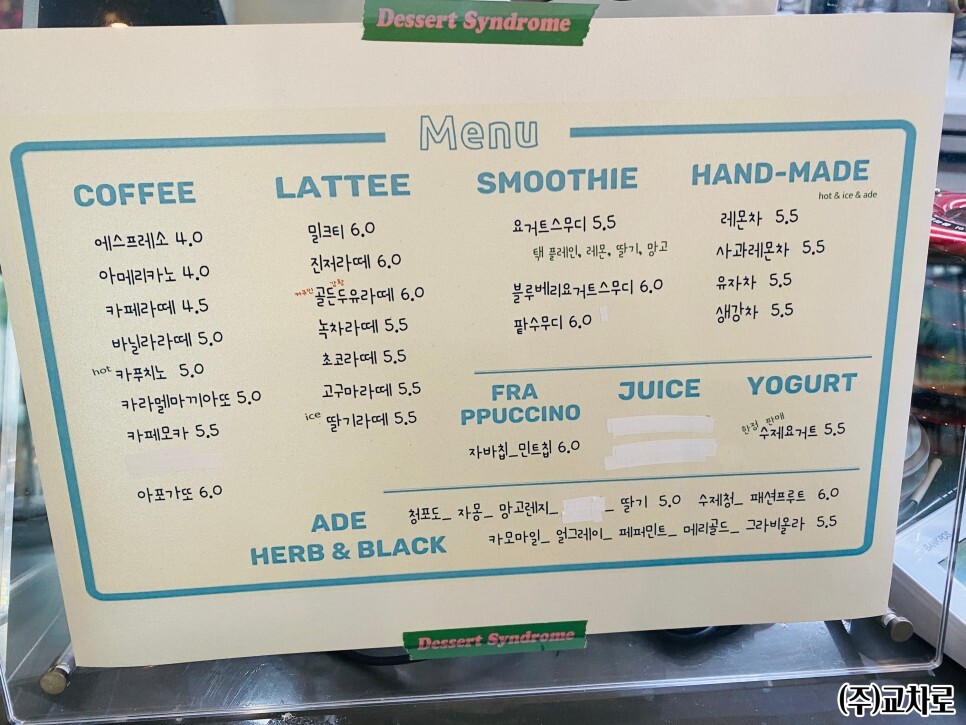 Dessert Syndrome
Menu
COFFEE
에스프레소 4.0
아메리카노 4.0
카페라떼 4.5
바닐라라떼 5.0
hot 카푸치노 5.0
카라멜마끼아또 5.0
카페모카 5.5
아포가또 6.0
LATTEE
밀크티 6.0
진저라떼 6.0
골든두유라떼 6.0
녹차라떼 5.5
초코라떼 5.5
고구마라떼 5.5
ice 딸기라떼 5.5
SMOOTHIE
요거트스무디 5.5
택 플레인, 레몬, 딸기, 망고
블루베리요거트스무디 6.0
팥스무디 6.0
HAND-MADE
hot & ice & ade
레몬차 5.5
사과레몬차 5.5
유자차 5.5
생강차 5.5
FRA
PPUCCINO
자바칩_민트칩 6.0
JUICE
YOGURT
한정 판매
수제요거트 5.5
ADE
청포도_ 자몽_ 망고렌지_ _ 딸기 5.0 수제청_ 패션프루트 6.0
HERB & BLACK
카모마일_ 얼그레이_ 페퍼민트_ 메리골드_ 그라비올라 5.5
Dessert Syndrome
(주)교차로